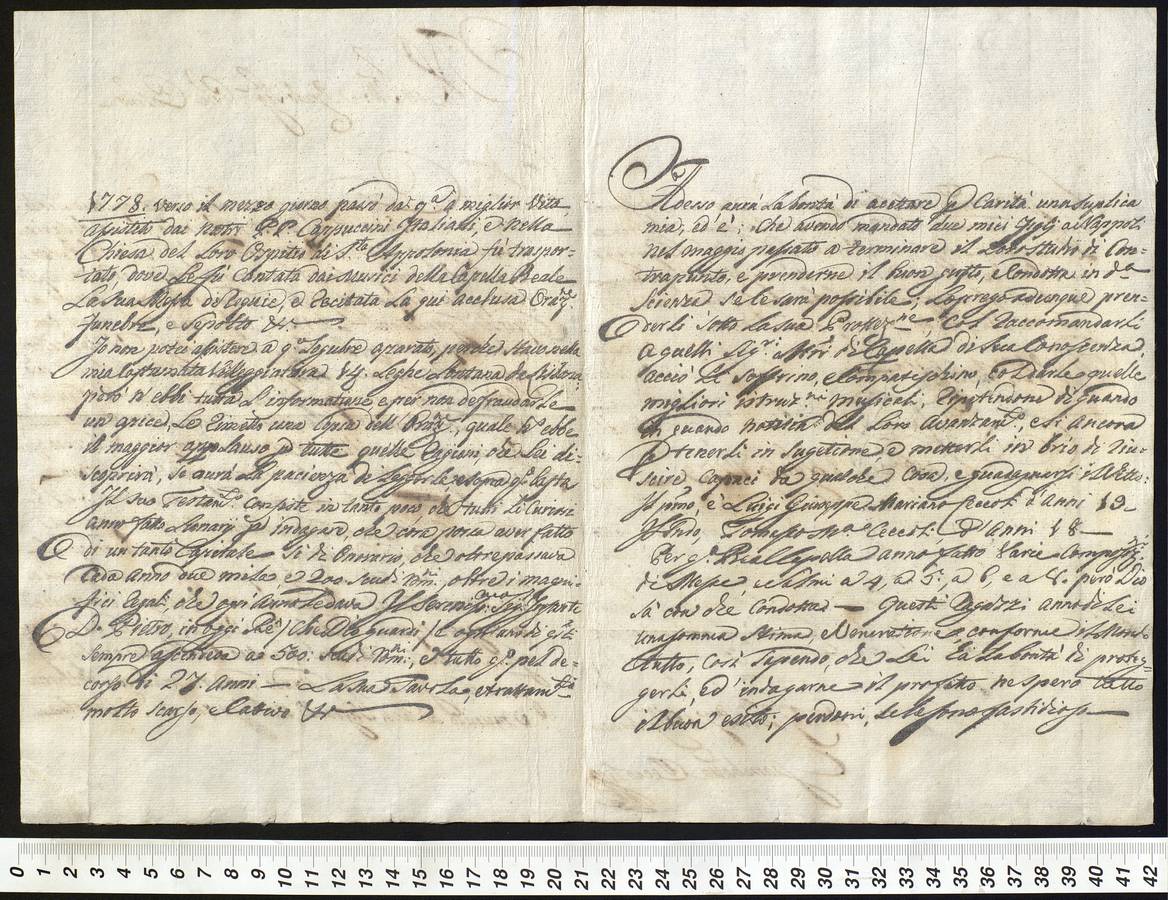 1778. verso il mezzo giorno passò da q.ª a miglior Vita,
assistito dai nostri P.P. Cappuccini Italiani, e nella
Chiesa del Loro Ospitio di S.ta Appolonia fù traspor-
tato, dove se fù Cantata dai Musici della Capella Reale
La sua Messa di Requie, e recitata La qui acclusa Oraz.ne
funebre, e sepolto &c.
Jo non potei assistere a q.º Lugubre aparato, perche stavo nella
mia Costumata Villeggiatura 14. Leghe Lontana da Lisbona,
però n'ebbi tutta L'informatione e per non defraudarle
un apice, Le rimetto una Copia dell'Oraz.ne, quale q.ª ebbe
il maggior applauso p tutte quelle ragioni che Lei di-
scoprirà, se aurà La pacienza di Leggerla sopra q.º Basta
Jl suo Testam.to Consiste in tanto poco che tutti Li Curiosi
anno fatto Lunarj p indagare, che cosa possa aver fatto
di un tanto Capitale. Si dè Onorario, che oltrepassava
Cada anno due mila e 200. scudi Rom.ni, oltre i magni-
fici regali, che ogni Anno Le dava Jl Sereniss.º Sig.r Infante
D.n Pietro, in oggi Rè / che Dio guardi / e ogni anno q.sti
sempre ascendeva a 500. scudi Rom.ni, e tutto q.º pel de-
corso di 27. Anni — La sua Tavola, e trattam.to
molto scarso, e Cativo &c.
Adesso aurà La bontà di accettare p Carità una Suplica
mia, ed è; Che avendo mandato due miei Figlj a Nappoli
nel maggio passato a terminare il Loro studio di Con-
trapunto, e prenderne il buon gusto, e Condotta in d.ª
scienza se le sarà possibile; La prego adunque pren-
derli sotto La sua Protez.ne, Col raccomandarli
a quelli Sig.ri Mri di Capella di Sua Conoscenza,
acciò Li soffrino, e Compatischino, Col darle quelle
migliori istruz.ni Musicali, rispettandone di quando
in quando notizia del Loro avanzam.to, e si ancora
p tenerli in sugezione e metterli in brio di riu-
scire Capaci da qualche Cosa, e guadagnarsi il Vitto:
Jl primo, è Luigi Giuseppe Mariano Ceccoti d'Anni 19 —
Jl Sndo, Tomaso M.ª Ceccoti d'Anni 18 —
Per q.ª Reallquella anno fatto varie Composiz.ni
di Messe, e salmi a 4, a 5., a 6, e a 8. però Dio
sà con che Condotta — Questi Ragazzi anno di Lei
una somma stima, e Venerazione, conforme il Mondo
tutto, Così sapendo, che Lei hà La bontà di proteg-
gerli, ed indagarne il profitto, ne spero tutto
il buon esito; perdoni, se Le sono fastidioso —